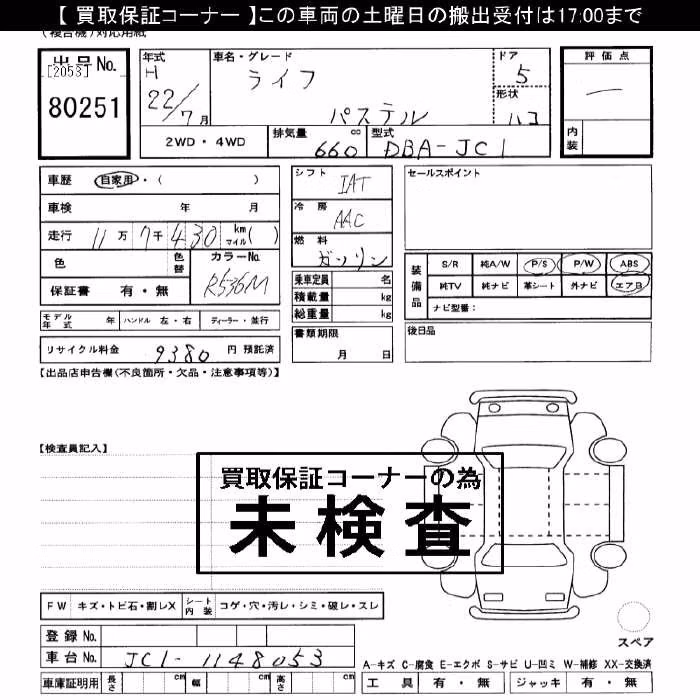 【 買取保証コーナー 】この車両の土曜日の搬出受付は17:00まで
(複合機)対応用紙
出品No.
[2053]
80251
年式
H
22/7月
車名・グレード
ライフ
パステル
ドア
5
形状
ハコ
評価点
—
内装
2WD・4WD
排気量
660
cc
型式
DBA-JC1
車歴
自家用・( )
車検 年 月
走行 11万7千430 km マイル( )
色
色替
カラーNo.
R536M
保証書 有・無
シフト
IAT
冷房
AAC
燃料
ガソリン
乗車定員 名
積載量 kg
総重量 kg
セールスポイント
装備品
S/R 純A/W P/S P/W ABS
純TV 純ナビ 革シート 外ナビ エアB
ナビ型番:
モデル年式 年
ハンドル 左・右
ディーラー・並行
リサイクル料金 9380 円 預託済
書類期限
月 日
後日品
【出品店申告欄(不良箇所・欠品・注意事項等)】
【検査員記入】
買取保証コーナーの為
未検査
FW キズ・トビ石・割レX
シート内装 コゲ・穴・汚レ・シミ・破レ・スレ
登録No.
車台No. JC1-1148053
車庫証明用 長さ cm 幅 cm 高さ cm
スペア
A-キズ C-腐食 E-エクボ S-サビ U-凹ミ W-補修 XX-交換済
工具 有・無 ジャッキ 有・無